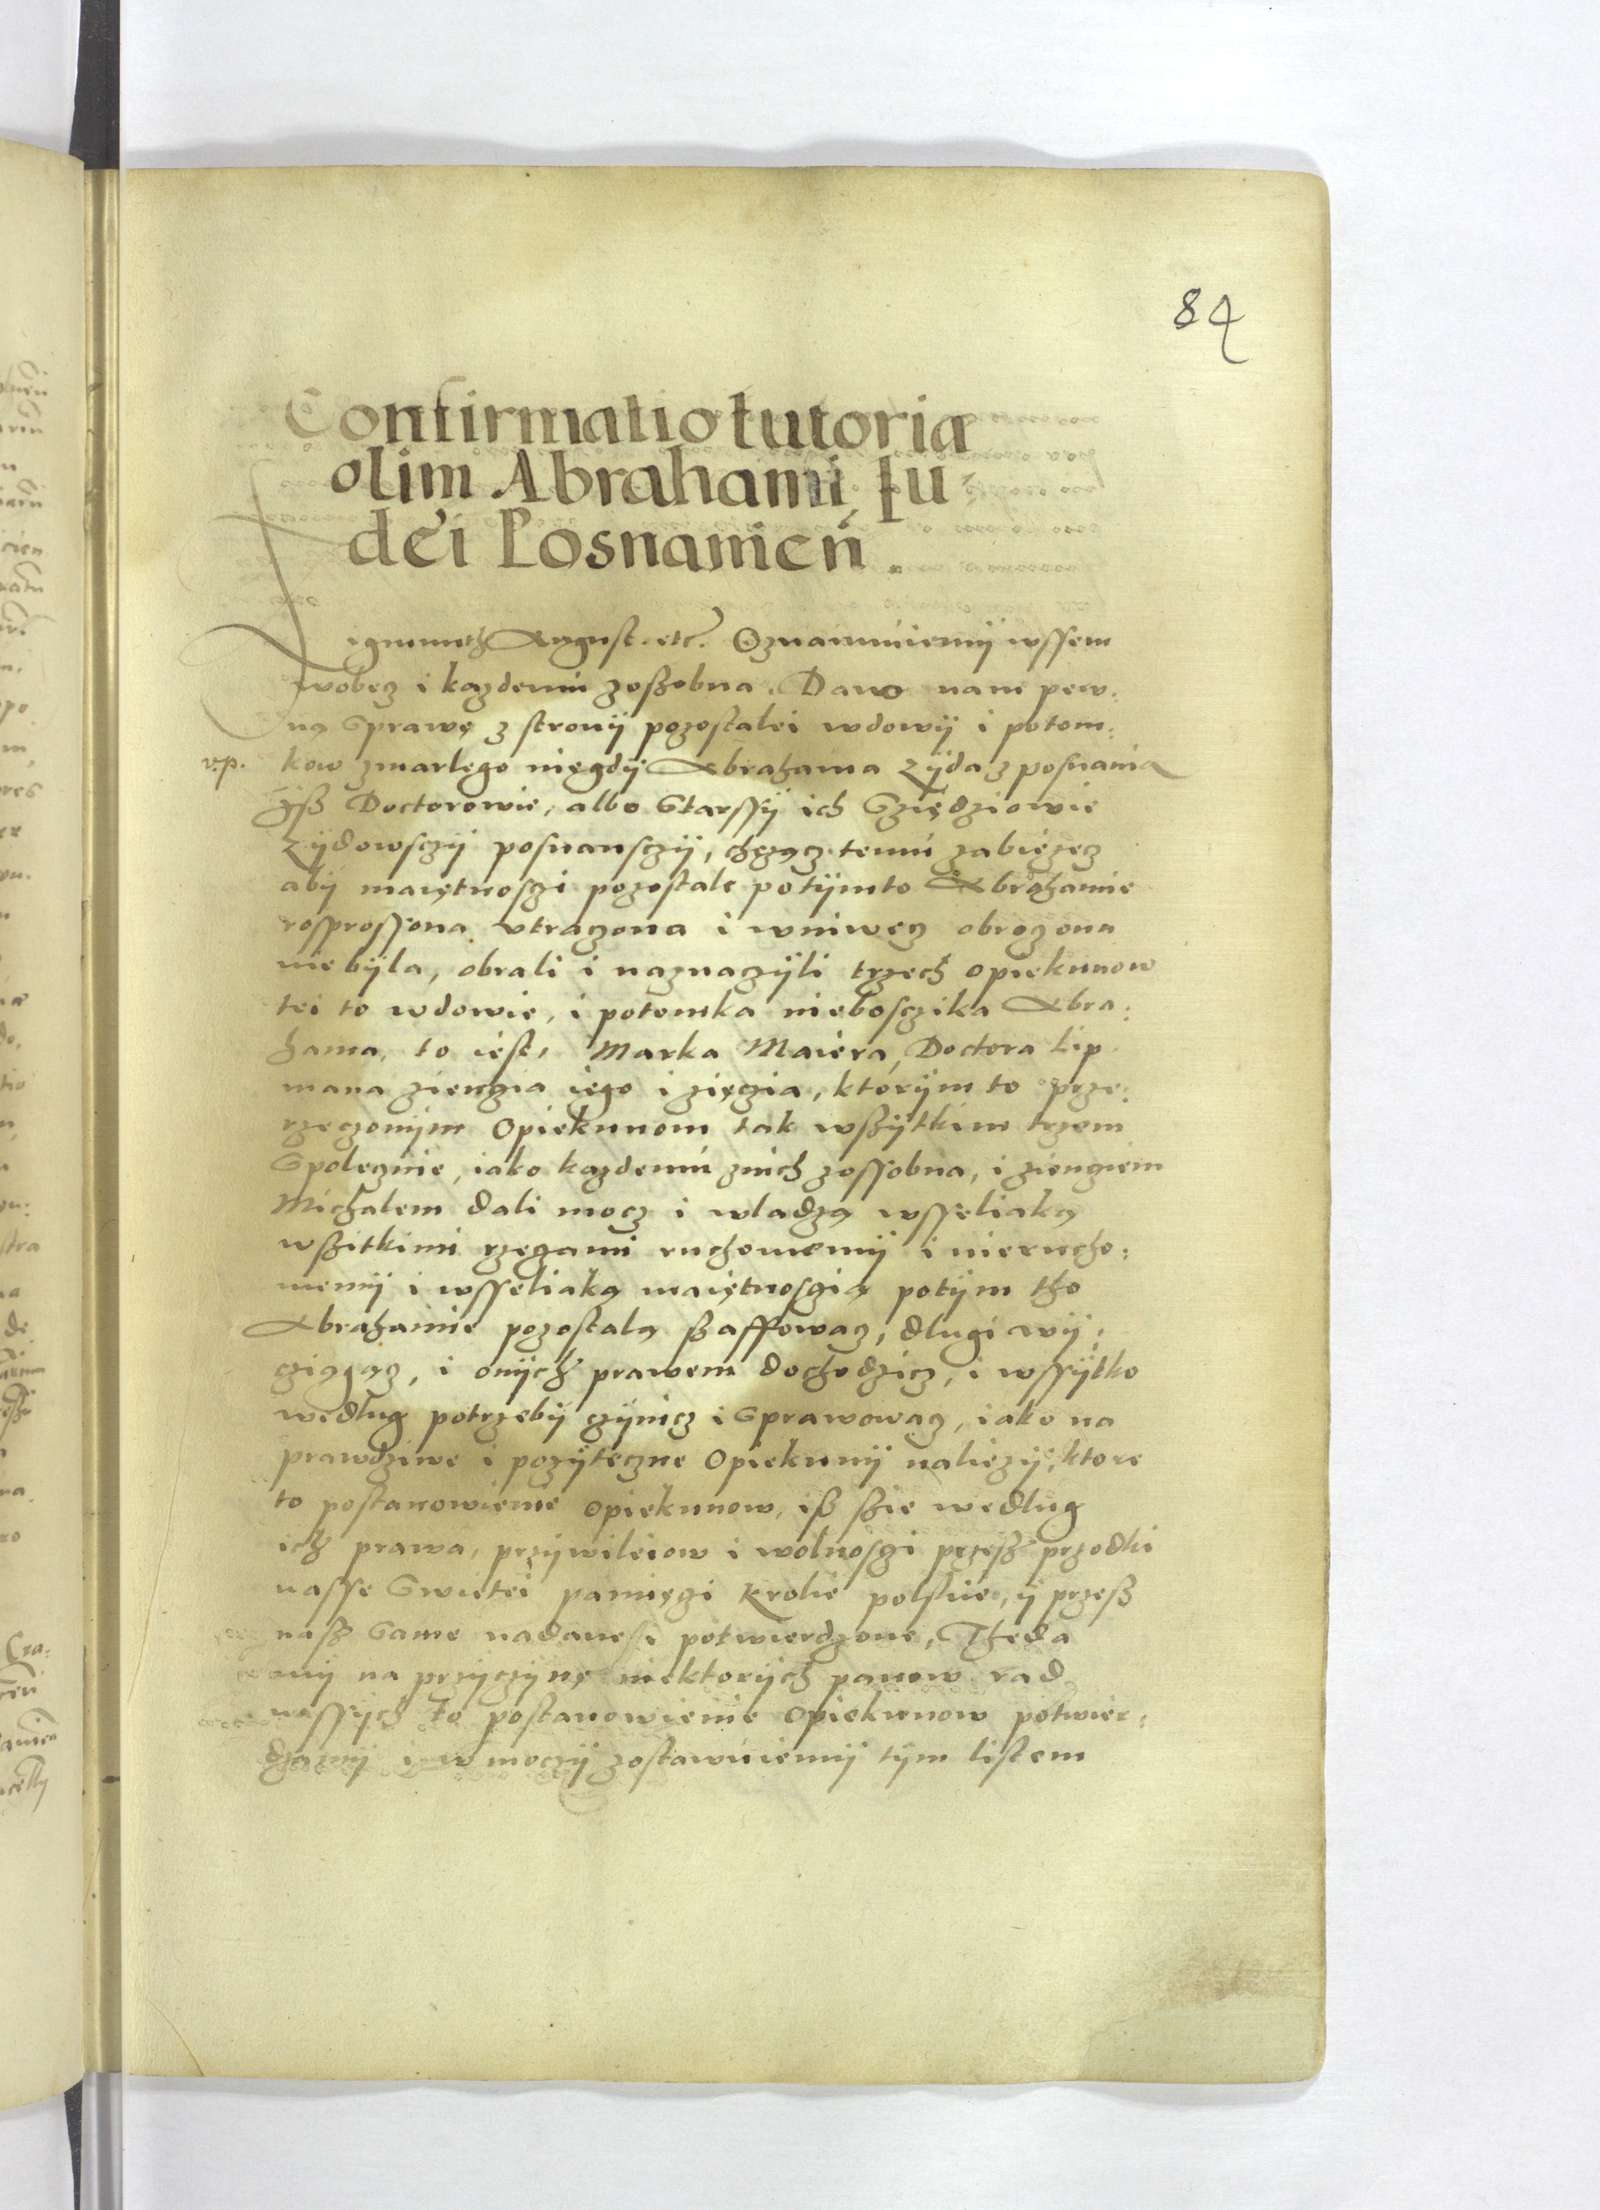 84
Confirmatio tutoriæ
olim Abrahami Iu-
dei Posnanień.
Zigmunth August. etc. Oznaimuiemÿ wssem
wobecz i kazdemu zoszobna. Dano nam pew:
ną Sprawę z stronÿ pozostalei wdowÿ i potom:
v.p. kow zmarłego niegdÿ Abrahama Zÿda z posnania
ÿsz Doctorowie, albo Starssÿ ich Szięđziowie
Zÿdowsczÿ posnansczÿ, chczącz temu zabiezecz
abÿ maiętnosczi pozostałe potÿmto Abrahamie
rosprossona utraczona i wniwecz obroczona
nie bÿła, obrali i naznaczÿli trzech opiekunow
tei to wdowie, i potomka nieboscżika Abra:
hama, to iest, Marka Maiera, Doctora Lip
mana zienzia iego i zięczia, którÿm to prze:
rzeczonÿm Opiekunom tak wszÿtkim trzem
Społecznie, iako kazdemu znich zossobna, i zienziem
Michałem dali mocz i władzą wsseliaką
wszitkimi rzeczami ruchomemÿ i nierucho:
memÿ i wsseliaką maiętnoscią potÿm tho
Abrahamie pozostałą szaffowacz, długi wÿ:
cziągacz, i onÿch prawem dochodzicz, i wssÿtko
według potrzebÿ czÿnicz i Sprawowacz, iako na
prawdziwe i pozÿteczne Opiekunÿ nalieżÿ, ktore
to postanowienie opiekunow, isz szie według
ich prawa, przÿwileiow i wolnosczi przesz przodki
nasse Swietei pamięczi Krolie polskie, ÿ przesz
nasz Same nadane si potwierdzone, Theda
mÿ na przÿczÿnę niektorÿch panow rad
nassÿch to postanowienie opiekunow potwier:
dzamÿ i w moczÿ zostawuiemÿ tÿm listem